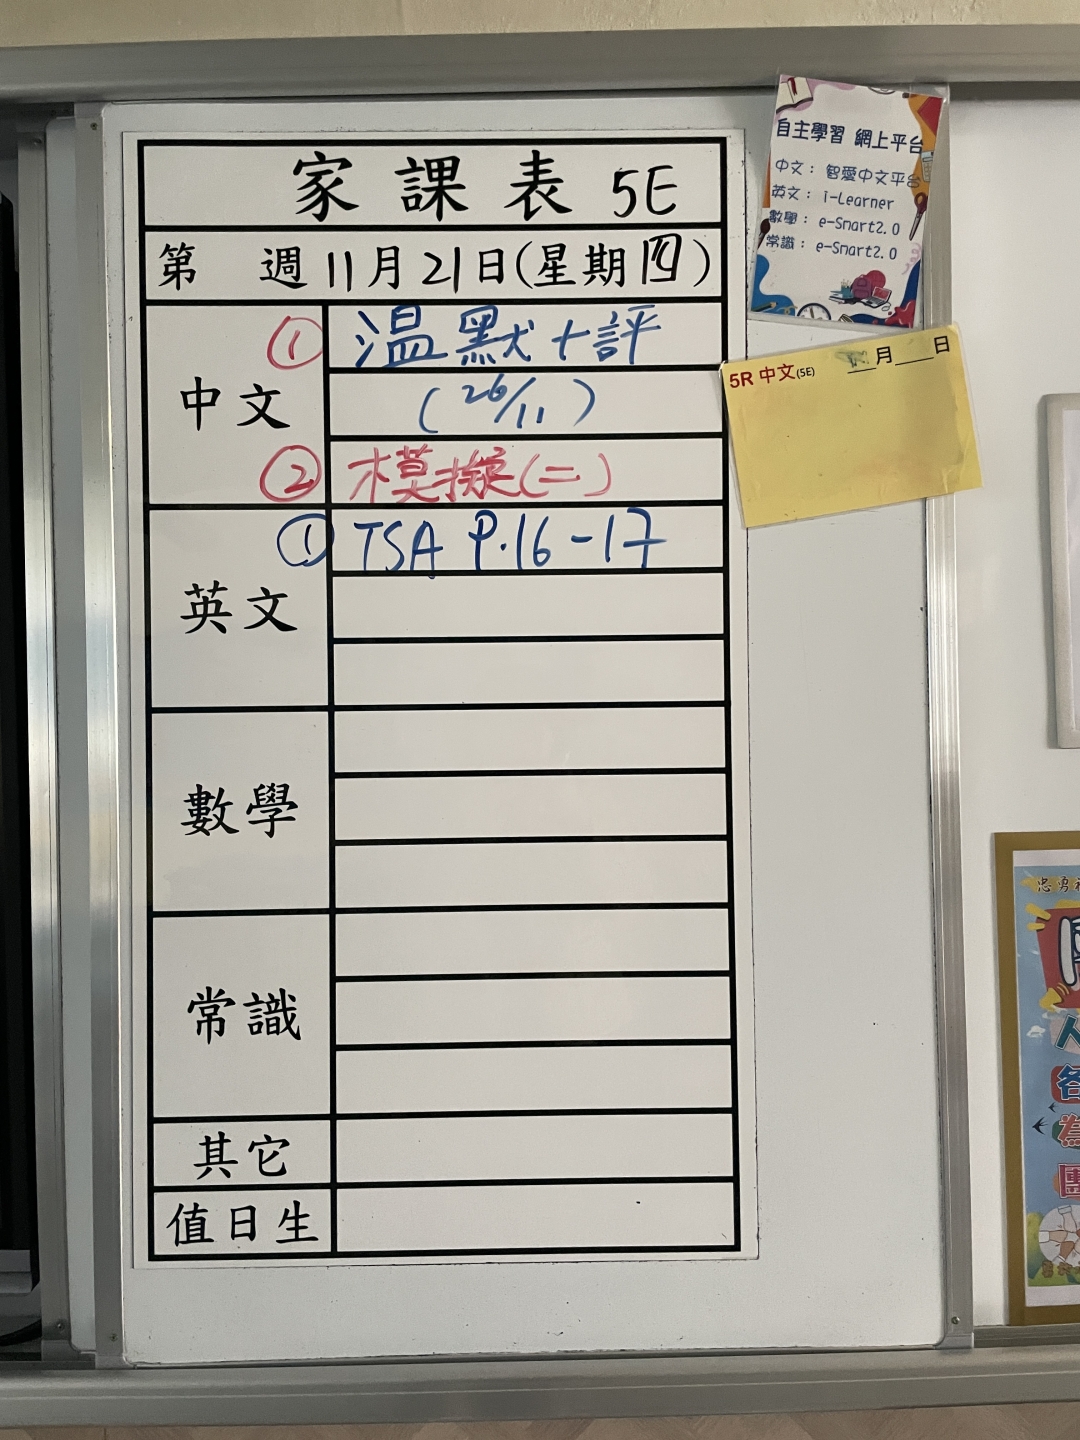 家課表 5E
第 週 11月21日(星期四)
中文
① 溫默+評
(26/11)
② 模擬(二)
英文
① TSA P.16-17
數學
常識
其它
值日生
自主學習 網上平台
中文： 智愛中文平台
英文： i-Learner
數學： e-Smart2.0
常識： e-Smart2.0
5R 中文(5E) ___月___日
忠勇
人
各
為
團